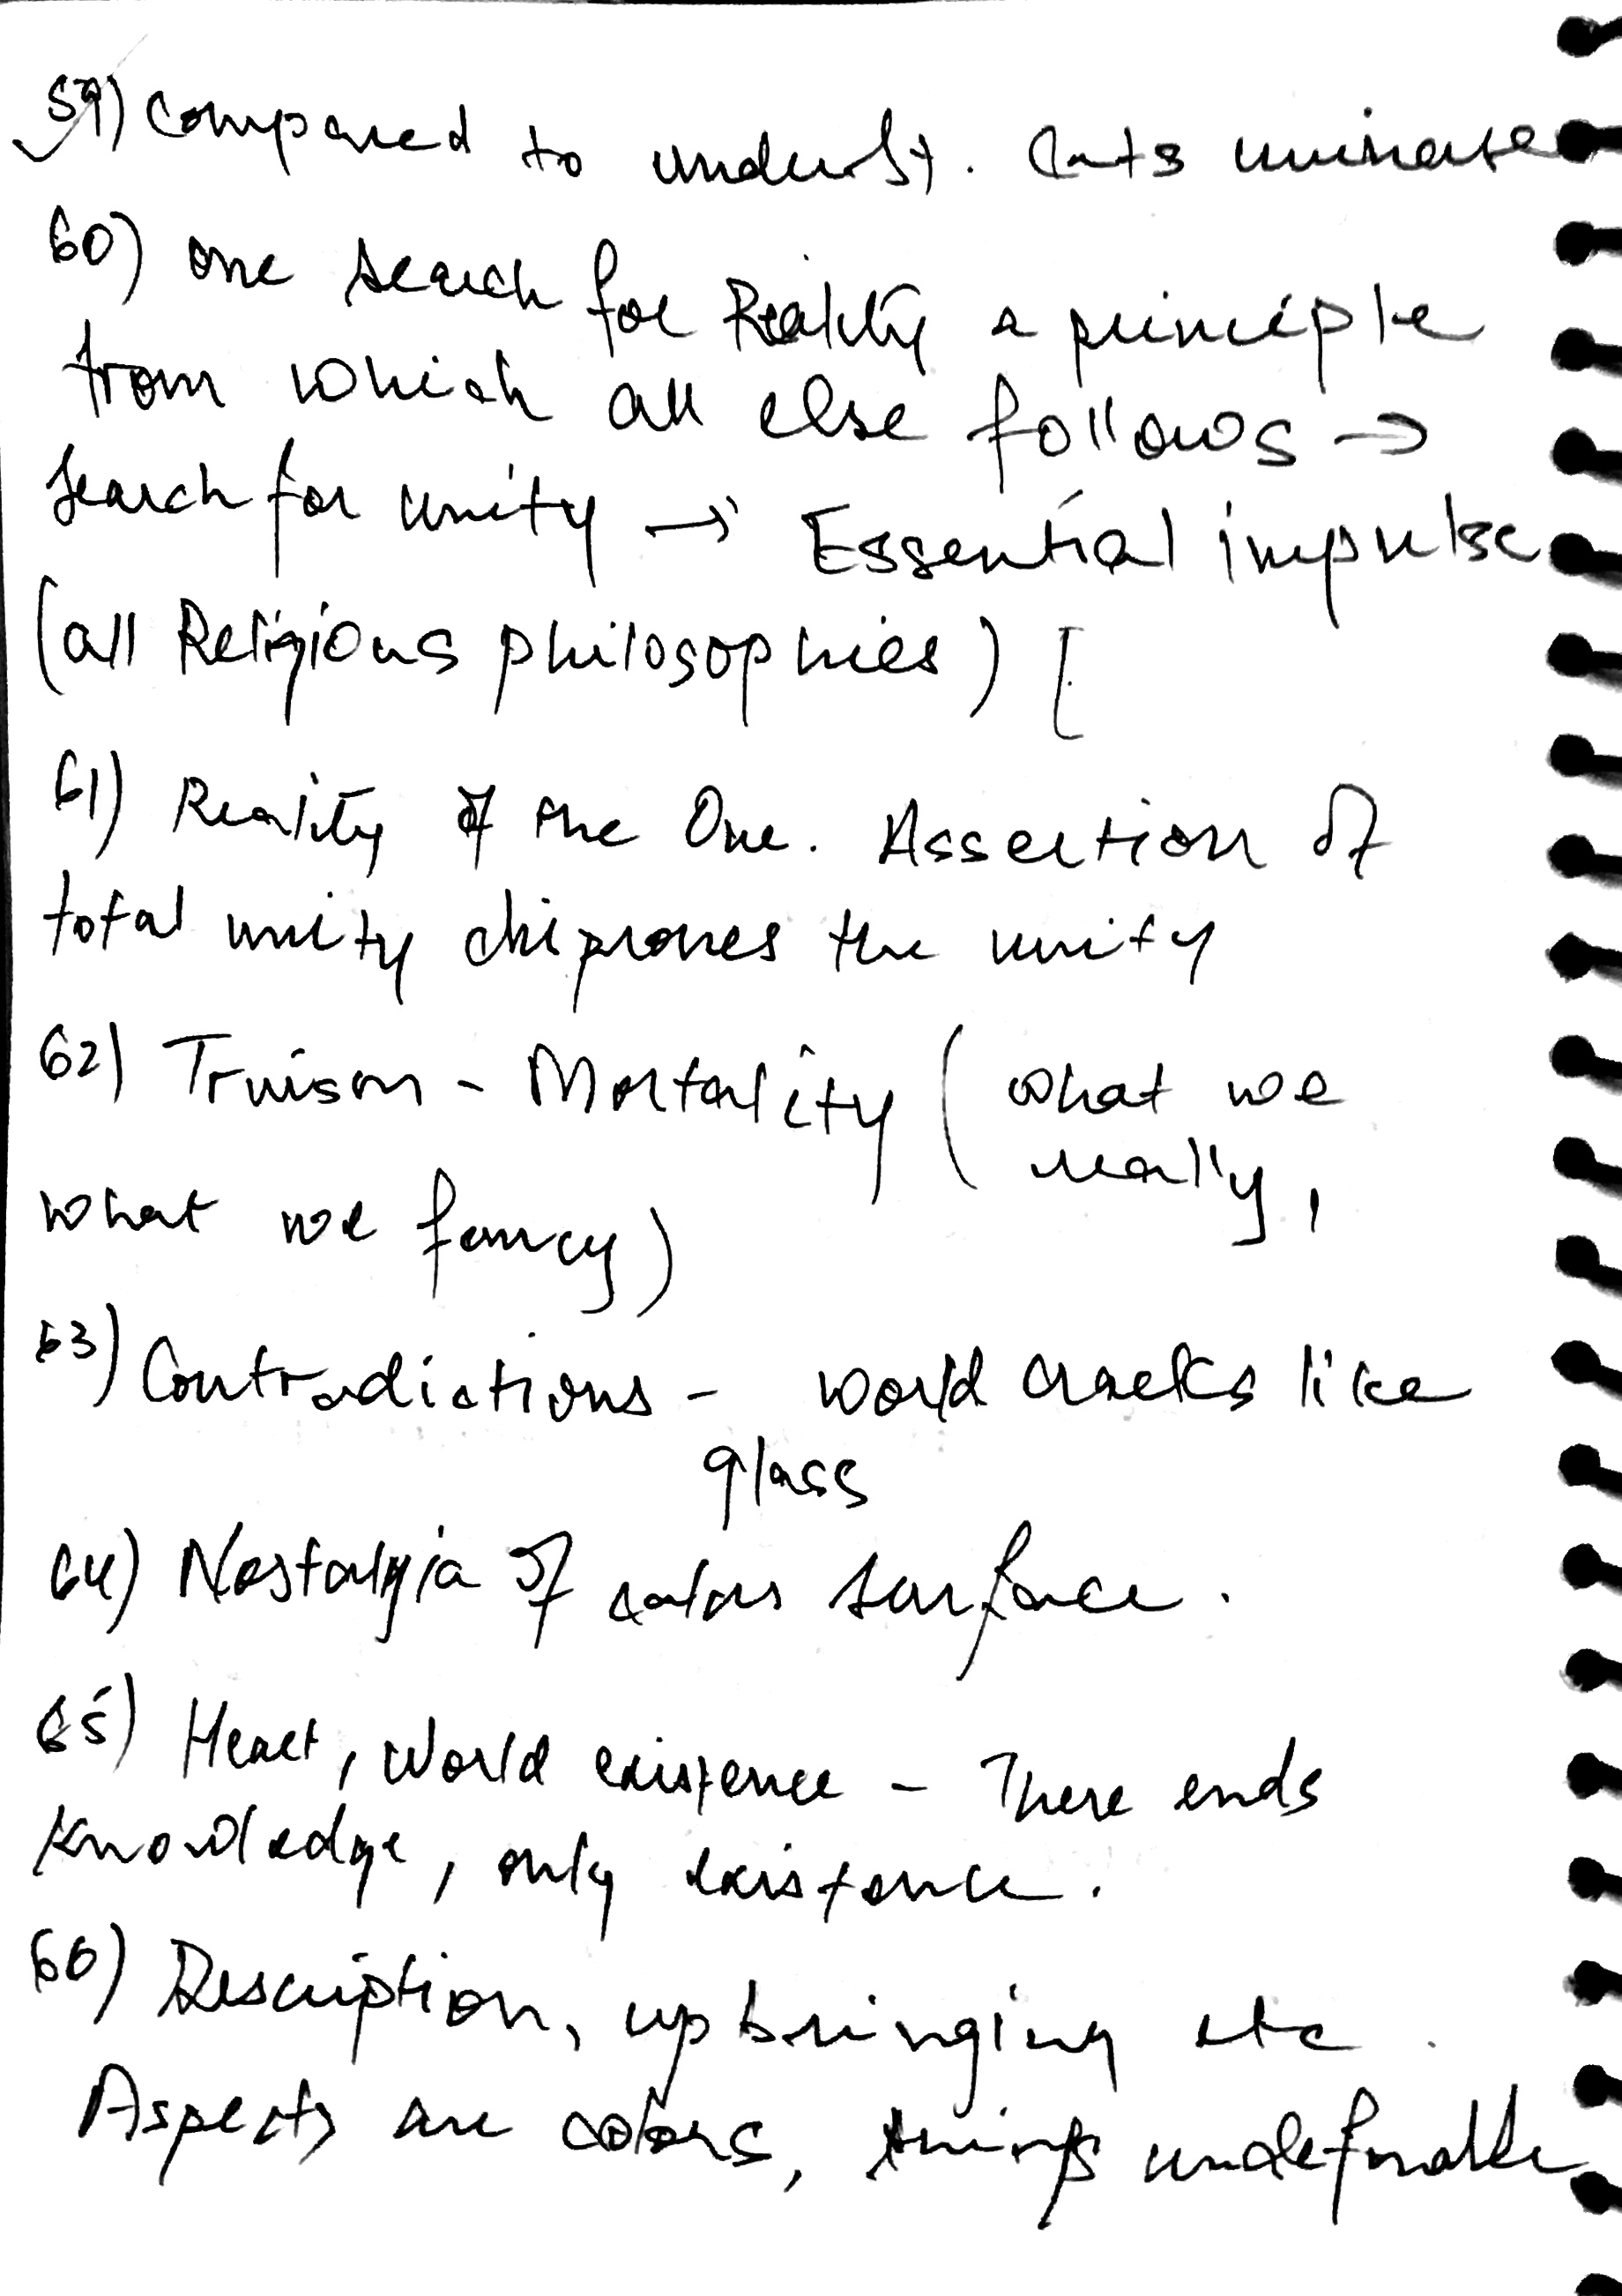 59) Compared to underst. Cats universe
60) one search for Reality a principle
from which all else follows →
search for unity → Essential impulse
(all Religious philosophies) [
61) Reality of the One. Assertion of
total unity disproves the unity
62) Truism - Mortality ( what we
really,
what we fancy)
63) Contradictions - World cracks like
glass
64) Nostalgia of calm surface.
65) Heart, World existence - There ends
knowledge, only existence.
66) Description, upbringing etc.
Aspects are colors, things undefinable